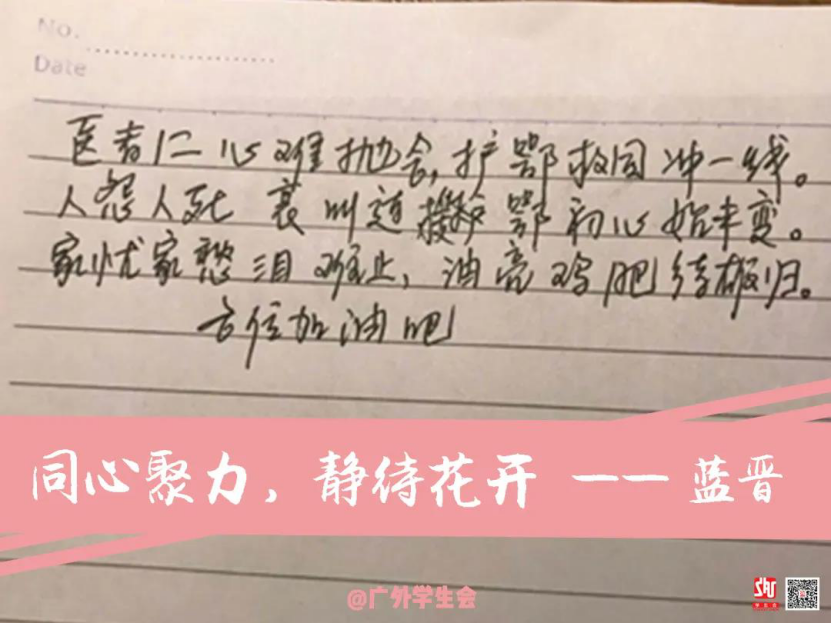 No.
Date
医者仁心难抛舍,护鄂救国冲一线。
人怨人死哀叫连 援鄂初心始未变。
家忧家愁泪难止,油亮鸡肥待报归。
各位加油吧
同心聚力，静待花开 一一 蓝晋
@广外学生会